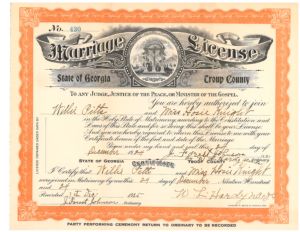 No. 430
Marriage License
State of Georgia Troup County
TO ANY JUDGE, JUSTICE OF THE PEACE, OR MINISTER OF THE GOSPEL.
You are hereby authorized to join
Willis Pitts and Miss Hosie Knight
in the Holy State of Matrimony according to the Constitution and
Laws of this State and for so doing this shall be your License
And you are hereby required to return this License to me with your
Certificate hereon of the fact and date of the Marriage.
December
STATE OF GEORGIA Certificate TROUP COUNTY
I Certify that Willis Pitts and Miss Hosie Knight
were joined in Matrimony by me this 24 day of December Nineteen Hundred
and 24
Recorded
W. L. Hardy
PARTY PERFORMING CEREMONY RETURN TO ORDINARY TO BE RECORDED